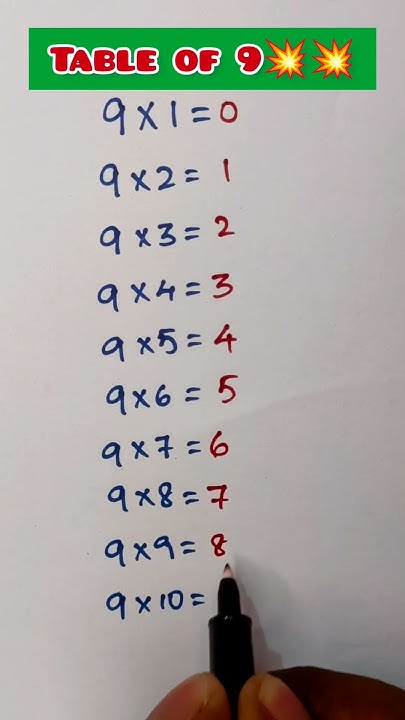 TABLE OF 9💥💥
9×1=0
9×2=1
9×3=2
9×4=3
9×5=4
9×6=5
9×7=6
9×8=7
9×9=8
9×10=